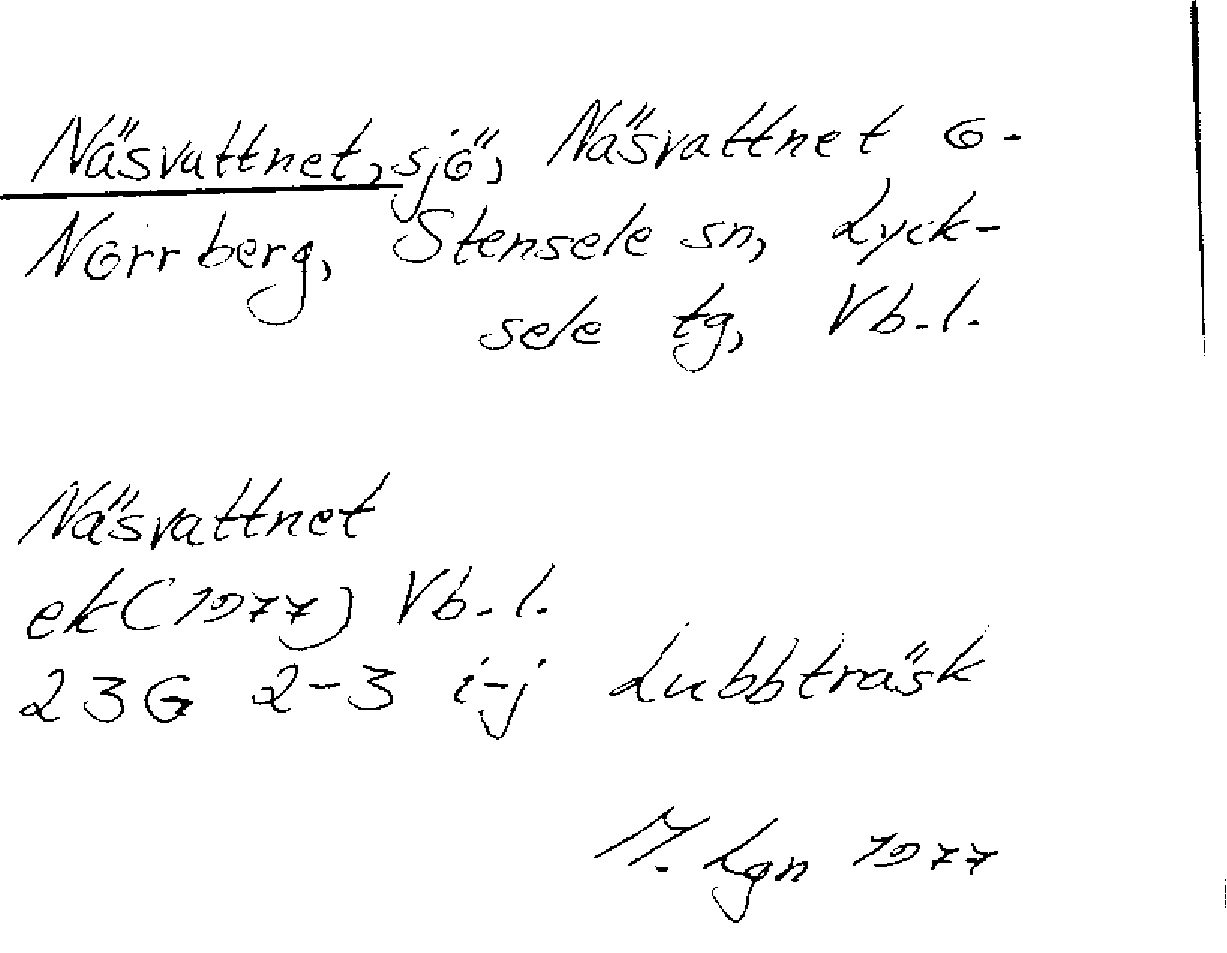 Näsvattnet, sjö, Näsvattnet o.
Norrberg, Stensele sn, Lyck-
sele tg, Vb.l.
Näsvattnet
ek(1977) Vb.l.
23G 2-3 i-j Lubbträsk
M. Lgn 1977